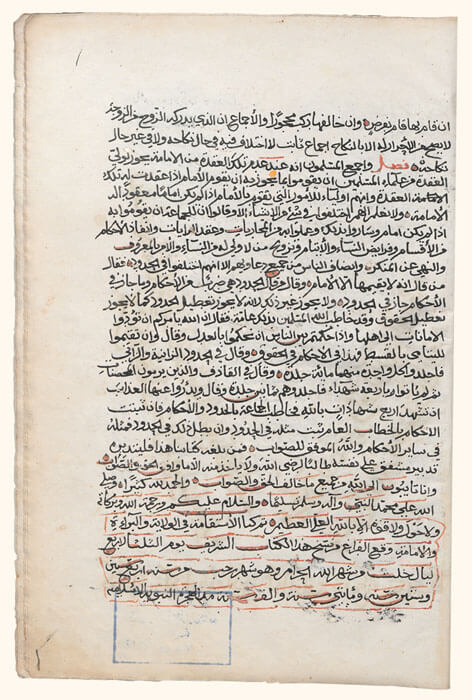 ان قام بها قام بفرض وان خالفها رده محجورا والاجماع ان الذي يدركه الزوج من الزوجة
لا يصح الابالنكاح اجماع ثابت لا اختلاف فيه في حال نكاحه ولا في غير حال
نكاحه فصل واجمع المسلمون ان عند عدم تلك العقدة من الامامة يجوز بولي
العقدة من علماء المسلمين ان يقوموا بما يجوز به ان يقوم الامام اذا عقدت له تلك
الامامة العقدة وانهم اولياء للأمور التي يقوم بالأمام اذا لم يكن اماما معقود له
الامامة ولا نعلم انهم اختلفوا في شيء من الاشياء الا وقالوا ان للجماعة ان يقوموا به
اذا لم يكن امام وساروا بذلك وعملوا به من المحاربات وعقد الرايات وانفاذ الاحكام
من الاقسام وفرائض النساء والأيتام وتزويج من لا ولي له من النساء والامر بالمعروف
والنهي عن المنكر وانصاف الناس من جميع دعاويهم الا انهم اختلفوا في الحدود فقال
من قال انه لا يقيمها الا الامام وقال من قال الحدود هي من سائر الاحكام وما جاز في
الأحكام جاز في الحدود ولا يجوز غير ذلك لانه لا يجوز تعطيل الحدود كما لا يجوز
تعطيل الحقوق وقد خاطب الله المسلمين بذلك عامة فقال ان الله يأمركم ان تؤدوا
الامانات الى اهلها واذا حكمتم بين الناس ان تحكموا بالعدل وقال وان تقوموا
لليتامى بالقسط فهذا في الاحكام في الحقوق وقال في الحدود الزانية والزاني
فاجلدوا كل واحد منهما مائة جلدة وقال في القاذف والذين يرمون المحصنات
ثم لم يأتوا باربعة شهداء فاجلدوهم ثمانين جلدة وقال ويدرؤا عنها العذاب
ان تشهد اربع شهادات بالله في الجماعة بالحدود والأحكام فان ثبتت
الاحكام بالخطاب العام ثبت مثله في الحدود وان بطل ذلك في الحدود فمثله
في سائر الأحكام والله الموفق للصواب فمن بلغه كتابنا هذا فليتدبره
تدبر مشفق على نفسه طالبا لرضى الله ولا ياخذ منه الا ما وافق الحق والصواب
وانا تائبون الى الله من جميع ما خالف الحق والصواب والحمد لله كثيرا وصلى
الله على محمد النبي وآله وسلم تسليما والسلام عليكم ورحمة الله وبركاته
ولا حول ولا قوة الا بالله العلي العظيم تم كتاب الاستقامة في الولاية والبراءة
والامامة وقع الفراغ من نسخ هذا الكتاب الشريف يوم الثلثا لاربع
ليال خلت من شهر الله الحرام وهو شهر رجب من سنة
وستين سنة ومائتي سنة والف سنة من الهجرة النبوية الاسلامية